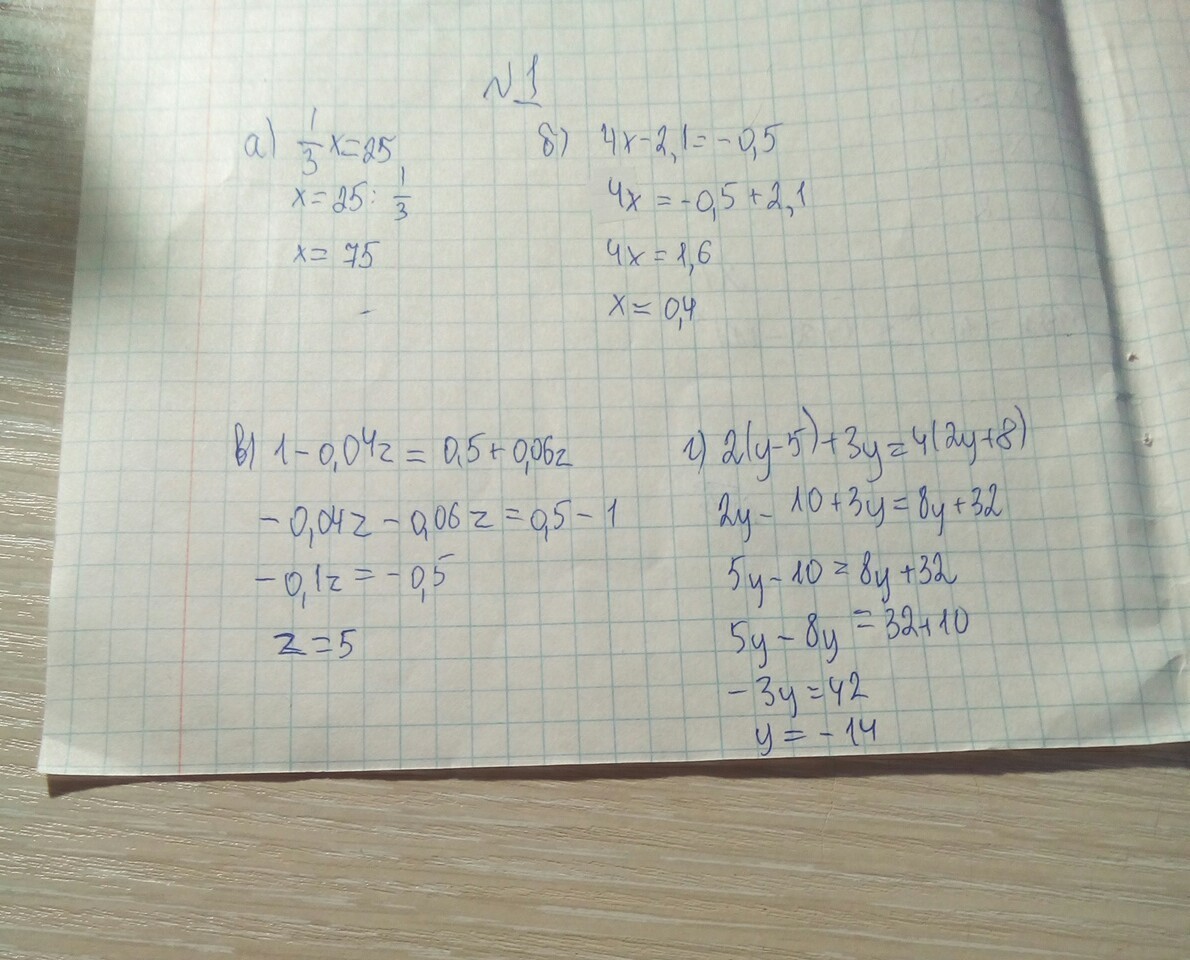 №1
а) 1/3 x=25
x=25: 1/3
x= 75
б) 4x-2,1=-0,5
4x=-0,5+2,1
4x=1,6
x=0,4
в) 1-0,04z=0,5+0,06z
-0,04z-0,06z=0,5-1
-0,1z=-0,5
z=5
г) 2(y-5)+3y=4(2y+8)
2y-10+3y=8y+32
5y-10=8y+32
5y-8y=32+10
-3y=42
y=-14